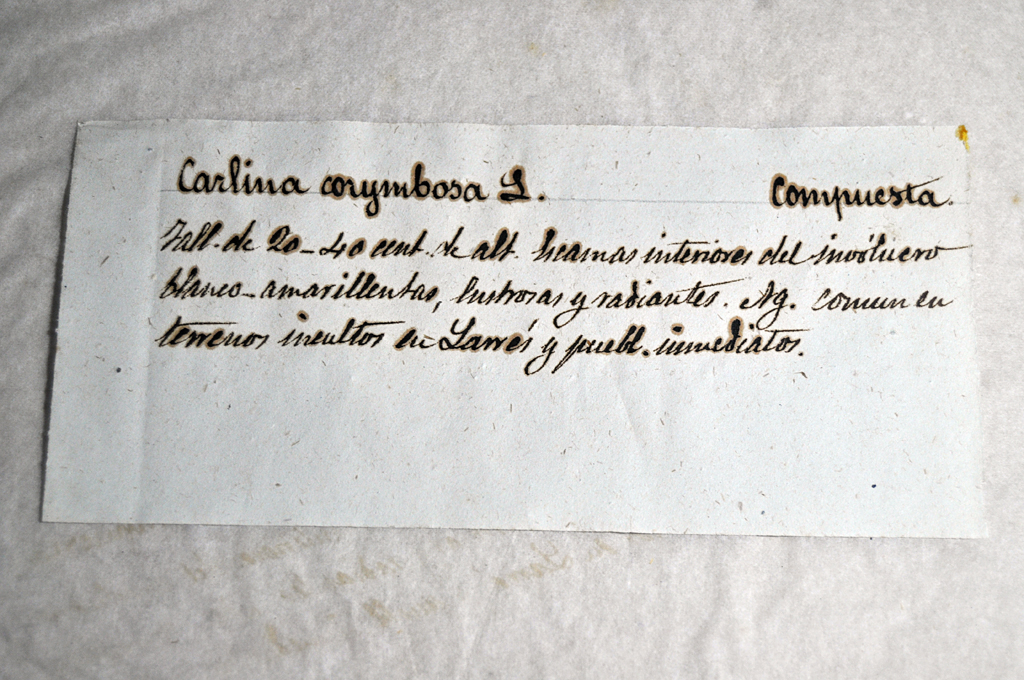 Carlina corymbosa L. Compuesta.
Tall. de 20-40 cent. de alt. Escamas interiores del involucro
blanco-amarillentas, lustrosas y radiantes. Ag. comun en
terrenos incultos en Larrés y puebl. inmediatos.